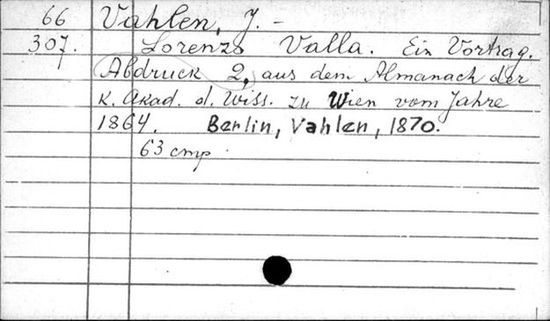 66 Vahlen, J. -
307. Lorenzo Valla. Ein Vortrag.
Abdruck 2, aus dem Almanach der
K. Akad. d. Wiss. zu Wien vom Jahre
1864. Berlin, Vahlen, 1870.
63 cmp